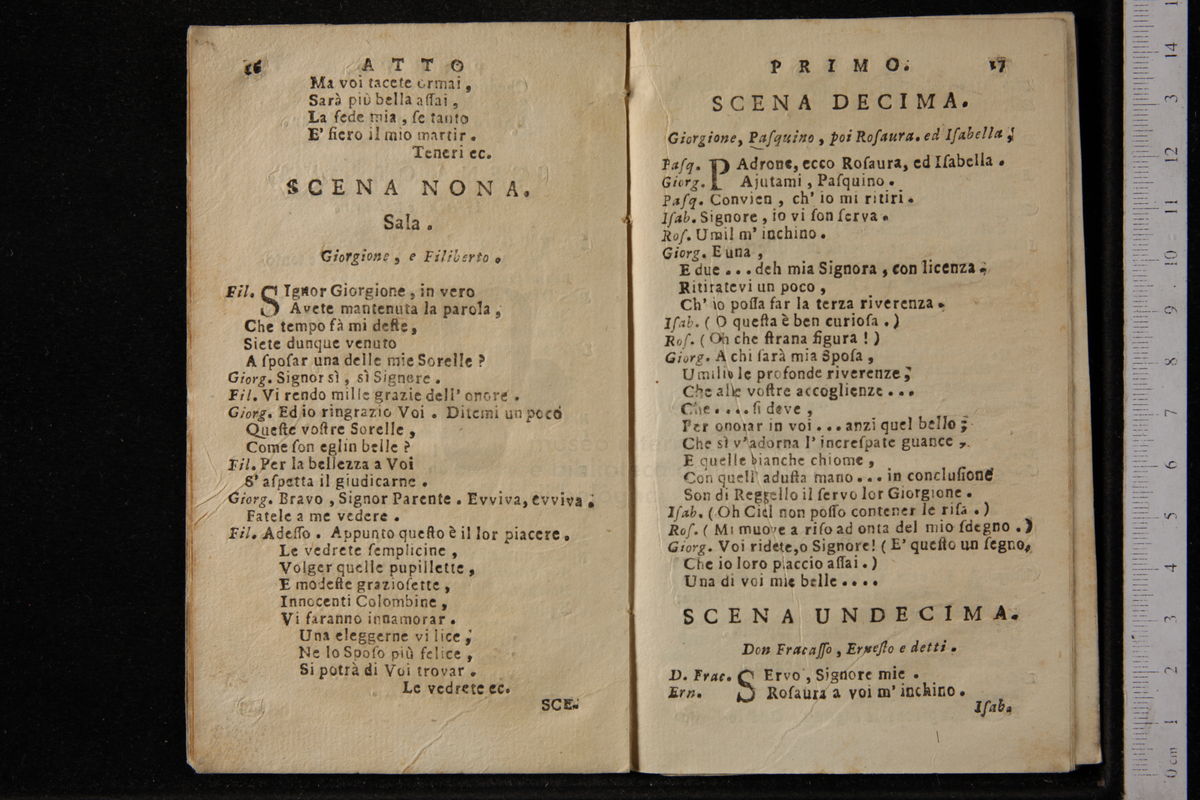 16 ATTO
Ma voi tacete ormai,
Sarà più bella aſſai,
La fede mia, ſe tanto
E' fiero il mio martir.
Teneri ec.
SCENA NONA.
Sala.
Giorgione, e Filiberto.
Fil. SIgnor Giorgione, in vero
Avete mantenuta la parola,
Che tempo fà mi deſte,
Siete dunque venuto
A ſpoſar una delle mie Sorelle?
Giorg. Signor sì, sì Signore.
Fil. Vi rendo mille grazie dell' onore.
Giorg. Ed io ringrazio Voi. Ditemi un poco
Queſte voſtre Sorelle,
Come ſon eglin belle?
Fil. Per la bellezza a Voi
S' aſpetta il giudicarne.
Giorg. Bravo, Signor Parente. Evviva, evviva.
Fatele a me vedere.
Fil. Adeſſo. Appunto queſto è il lor piacere.
Le vedrete ſemplicine,
Volger quelle pupillette,
E modeſte grazioſette,
Innocenti Colombine,
Vi faranno innamorar.
Una eleggerne vi lice,
Ne lo Spoſo più felice,
Si potrà di Voi trovar.
Le vedrete ec.
SCE-
PRIMO. 17
SCENA DECIMA.
Giorgione, Paſquino, poi Roſaura. ed Iſabella;
Paſq. PAdrone, ecco Roſaura, ed Iſabella.
Giorg. Ajutami, Paſquino.
Paſq. Convien, ch' io mi ritiri.
Iſab. Signore, io vi ſon ſerva.
Roſ. Umil m' inchino.
Giorg. E una,
E due ... deh mia Signora, con licenza.
Ritiratevi un poco,
Ch' io poſſa far la terza riverenza.
Iſab. (O queſta è ben curioſa.)
Roſ. (Oh che ſtrana figura!)
Giorg. A chi ſarà mia Spoſa,
Umilio le profonde riverenze;
Che alle voſtre accoglienze...
Che .... ſi deve,
Per onorar in voi ... anzi quel bello;
Che sì v'adorna l' increſpate guance,
E quelle bianche chiome,
Con quell' aduſta mano... in concluſione
Son di Reggello il ſervo lor Giorgione.
Iſab. (Oh Ciel non poſſo contener le riſa.)
Roſ. (Mi muove a riſo ad onta del mio ſdegno.)
Giorg. Voi ridete, o Signore! (E' queſto un ſegno,
Che io loro piaccio aſſai.)
Una di voi mie belle....
SCENA UNDECIMA.
Don Fracaſſo, Erneſto e detti.
D. Frac. SErvo, Signore mie.
Ern. Roſaura a voi m' inchino.
Iſab.